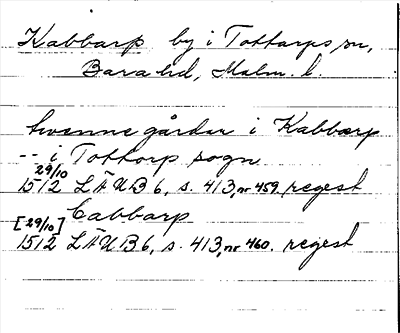 Kabbarp by i Tottarps sn,
Bara hd, Malm. l.
tvenne gårdar i Kabbarp
-- i Tottorp sogn
29/10
1512 LÄUB 6, s. 413, nr 459. regest
Cabbarp
[29/10]
1512 LÄUB 6, s. 413, nr 460. regest